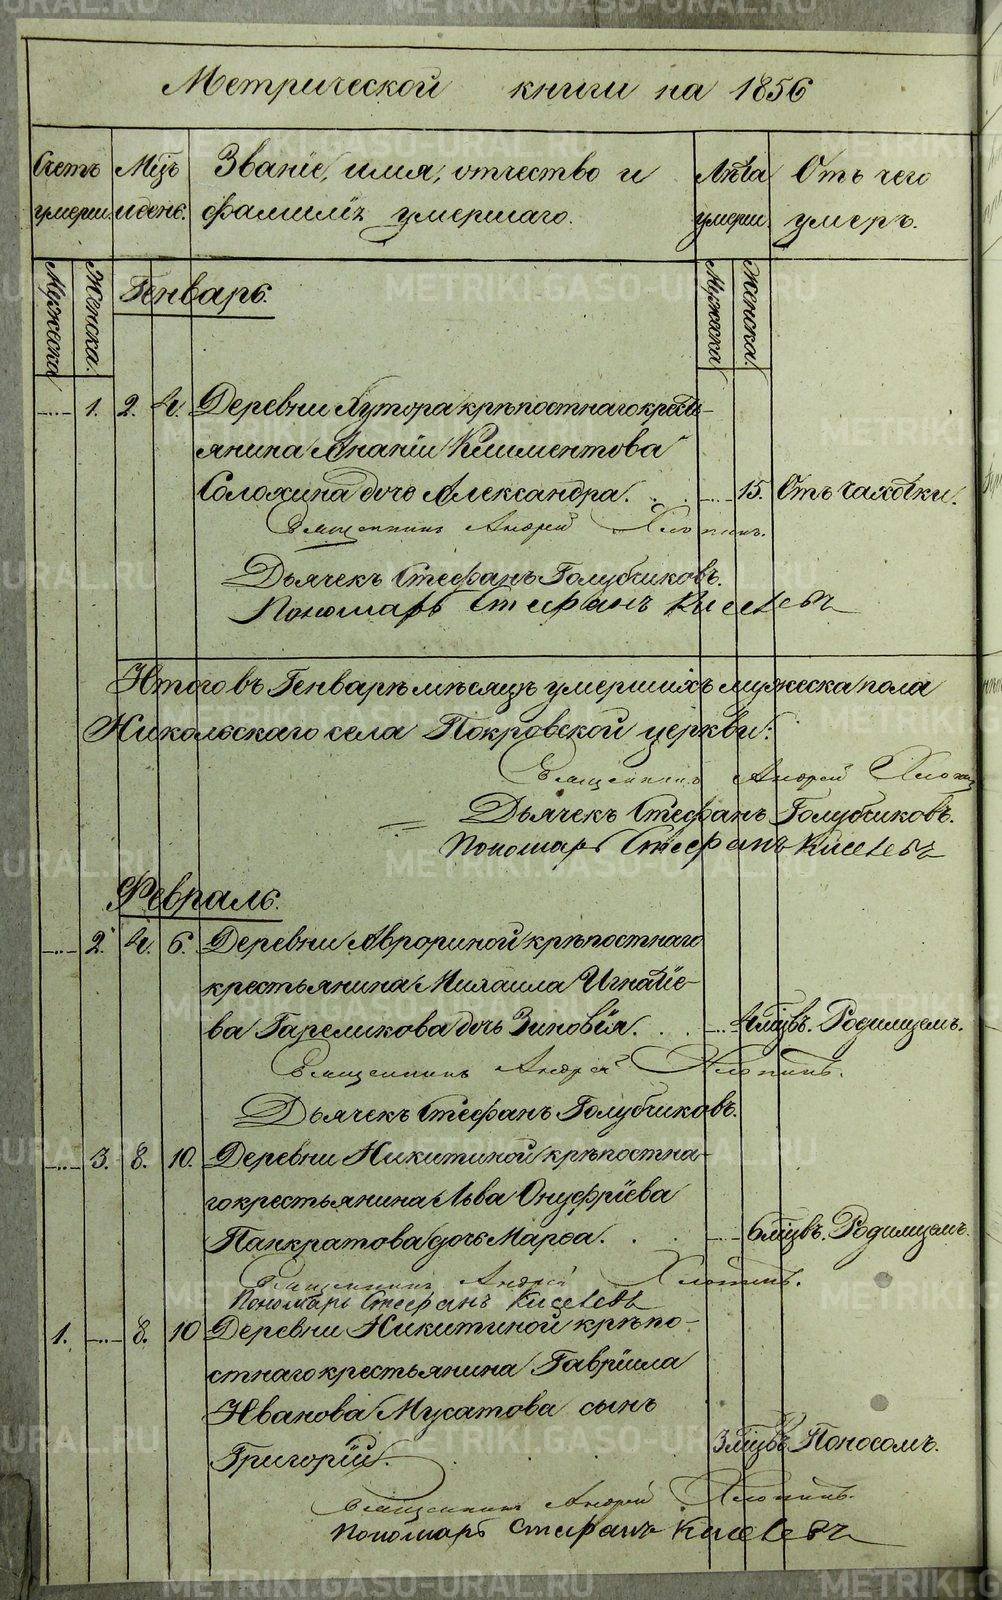 Метрической книги на 1856
Счетъ умерш. Мѣсяцъ и день. Званіе, имя, отчество и фамилія умершаго. Лѣта умерш. Отъ чего умеръ.
Мужеска Женска. Мужеска Женска.
Генварь.
1. 2. 4. Деревни Хутора крѣпостнаго кресть-
янина Ананіи Климентова
Солохина дочь Александра. 15. Отъ чахотки.
Священникъ Андрей Хлопинъ.
Дьячекъ Стефанъ Голубчиковъ.
Пономарь Стефанъ Киселевъ
Итого въ Генварѣ мѣсяцѣ умершихъ мужеска пола
Никольскаго села Покровской церкви:
Священникъ Андрей Хлопин
Дьячекъ Стефанъ Голубчиковъ.
Пономарь Стефанъ Киселевъ
Февраль.
2. 4. 6. Деревни Аврориной крѣпостнаго
крестьянина Михаила Игнатіе-
ва Гаремикова дочь Зиновія. 4 мцвъ. Родимцемъ.
Священникъ Андрей Хлопинъ.
Дьячекъ Стефанъ Голубчиковъ.
3. 8. 10. Деревни Никитиной крѣпостна-
го крестьянина Льва Онуфріева
Панкратова дочь Марѳа. 6 мцвъ. Родимцемъ.
Священникъ Андрей Хлопинъ.
Пономарь Стефанъ Киселевъ
1. 8. 10 Деревни Никитиной крѣпо-
стнаго крестьянина Гавріила
Иванова Мусатова сынъ
Григорій. 3 мцвъ. Поносомъ.
Священникъ Андрей Хлопинъ.
Пономарь Стефанъ Киселевъ
METRIKI.GASO-URAL.RU